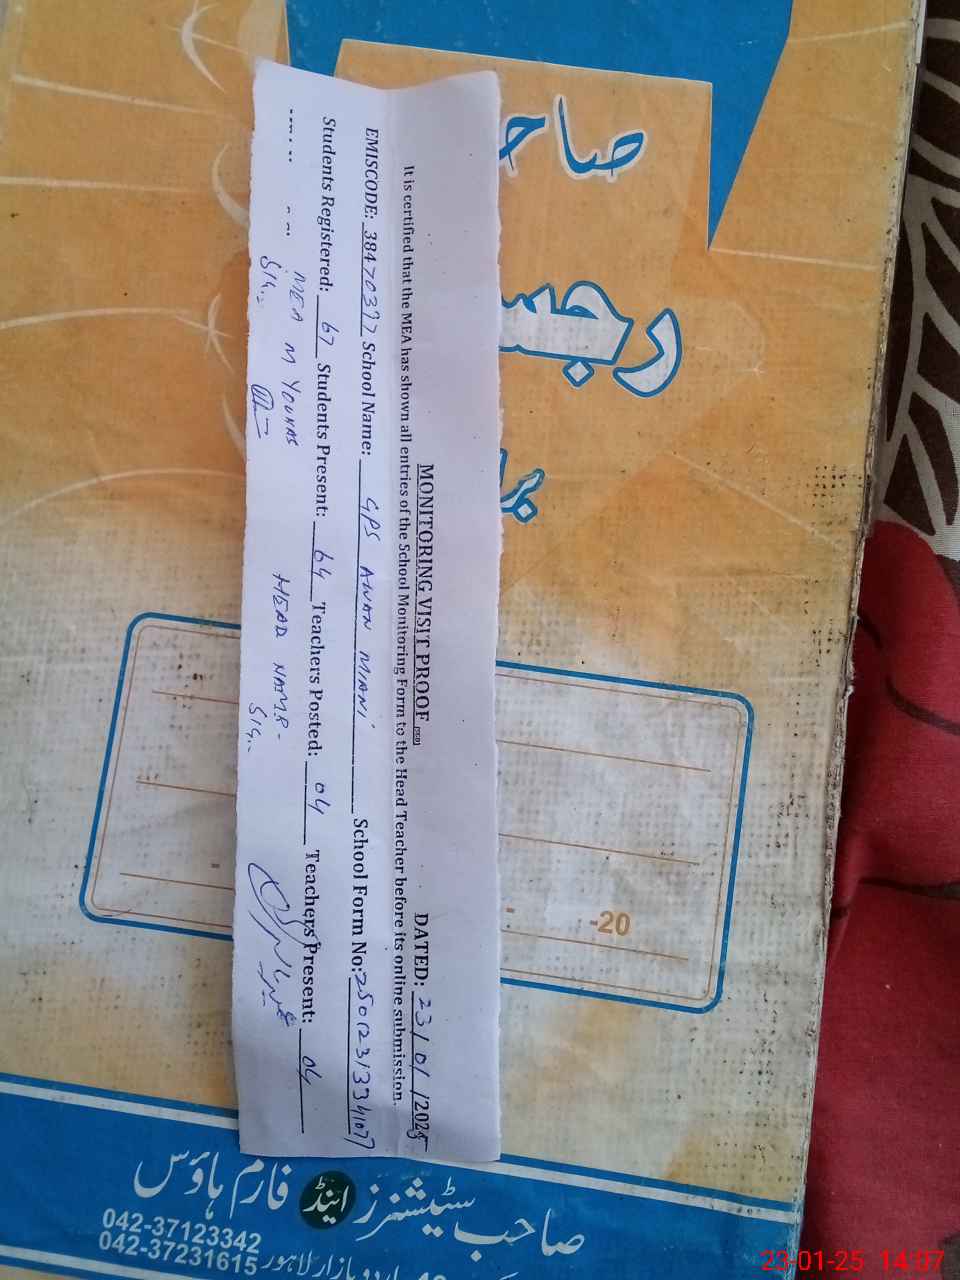 MONITORING VISIT PROOF DATED: 23/01/2025
It is certified that the MEA has shown all entries of the School Monitoring Form to the Head Teacher before its online submission.
EMISCODE: 38470377 School Name: GPS AWAN MIANI School Form No: 25012313341077
Students Registered: 67 Students Present: 64 Teachers Posted: 04 Teachers Present: 04
MEA M YOUNAS HEAD NAME-
SIG.. SIG..
صاحب
رجسٹر
-20
صاحب سٹیشنرز اینڈ فارم ہاؤس
042-37123342
042-37231615 اردو بازار لاہور
23-01-25 14:07